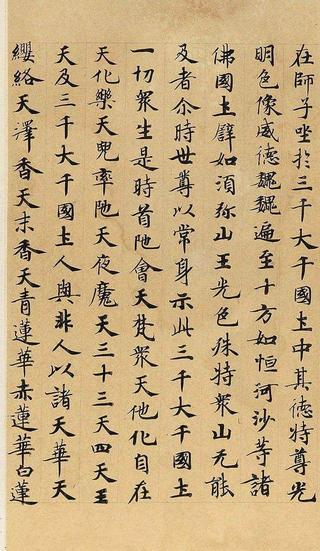 在師子坐於三千大千國土中其德特尊光
明色像威德巍巍遍至十方如恒河沙等諸
佛國土譬如須弥山王光色殊特衆山无能
及者尒時世尊以常身示此三千大千國土
一切衆生是時首陁會天梵衆天他化自在
天化樂天兜率陁天夜魔天三十三天四天王
天及三千大千國土人與非人以諸天華天
纓絡天澤香天末香天青蓮華赤蓮華白蓮